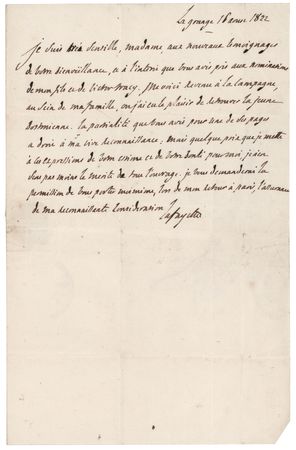 La grange 16 1822
je suis bien sensible, madame, aux nouveaux témoignages
de votre bienveillance, et à l'intérêt que vous avés pris aux nominations
de mon fils et de victor tracy. Me voici revenu à la campagne,
au sein de ma famille, où j'ai eu le plaisir de retrouver la jeune
. La partialité que vous avés pour une de ses pages
a droit à ma vive reconnaissance, mais quelque prix que je mette
à ces expressions de votre estime et de votre bonté pour moi, je
pas moins le mérite de tout l'ouvrage. je vous demanderai la
permission de vous porter moi même, lors de mon retour à paris, l'
de ma reconnaissante Considération
Lafayette